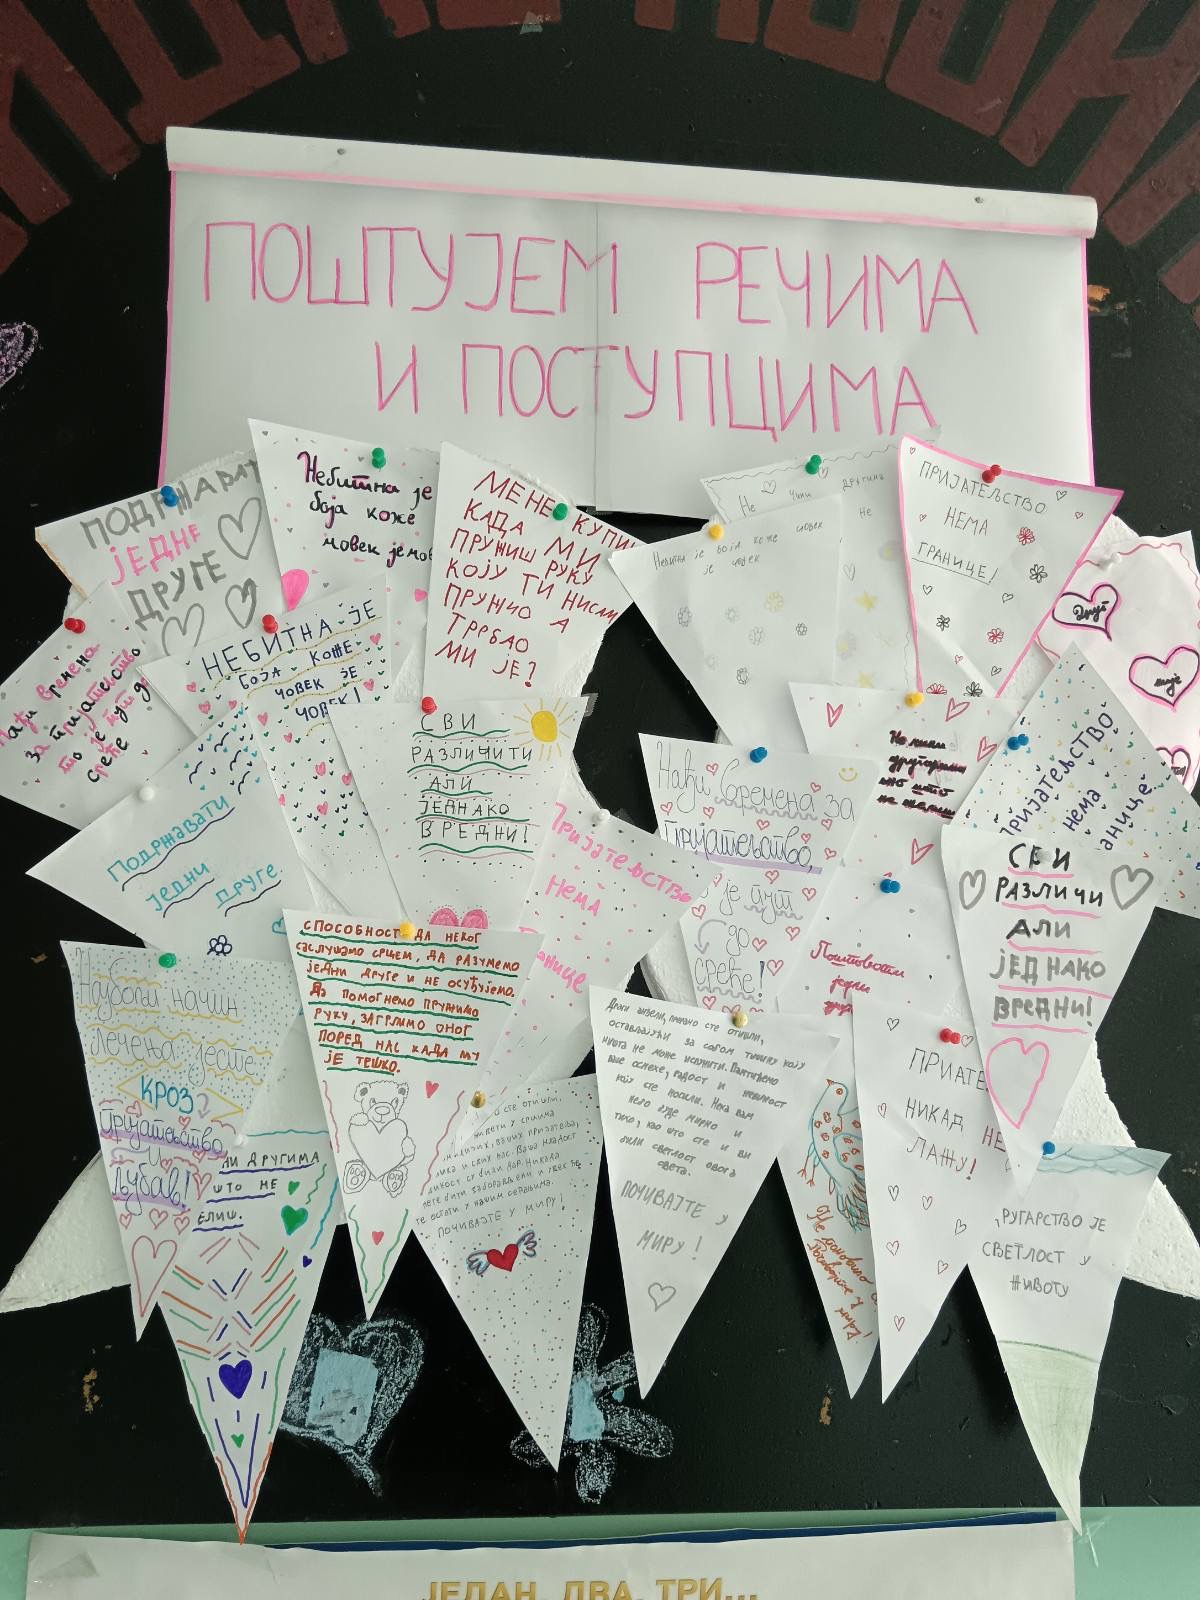 ПОШТУЈЕМ РЕЧИМА
И ПОСТУПЦИМА
ПОДРЖАВАТ
ЈЕДНЕ
ДРУГЕ
Небитна је
боја коже
човек је чов
МЕНЕ КУПИ
КАДА МИ
ПРУЖИШ РУКУ
КОЈУ ТИ НИСАМ
ПРУЖИО А
ТРЕБАО
МИ ЈЕ?
Не чини другима
Не
Небитна је боја коже човек
је човек
ПРИЈАТЕЉСТВО
НЕМА
ГРАНИЦЕ!
Друг
није
Нађи времена
за пријатељство
то је пут до
среће
НЕБИТНА ЈЕ
БОЈА КОЖЕ-
ЧОВЕК ЈЕ
ЧОВЕК!
СВИ
РАЗЛИЧИТИ
АЛИ
ЈЕДНАКО
ВРЕДНИ!
Нађи времена за
пријатељство,
је пут
до
среће!
другарима
оно што
не желиш
ПРИЈАТЕЉСТВО
нема
анице
Подржавати
једни
друге.
Пријатељство
Нема
ранице
Поштовати
једни
СВИ
РАЗЛИЧИ
АЛИ
ЈЕДНАКО
ВРЕДНИ!
Најбољи начин
лечења јесте
КРОЗ
пријатељство
и
љубав!
СПОСОБНОСТ ДА НЕКОГ
САСЛУШАМО СРЦЕМ, ДА РАЗУМЕМО
ЈЕДНИ ДРУГЕ И НЕ ОСУЂУЈЕМО.
ДА ПОМОГНЕМО ПРУЖИМО
РУКУ, ЗАГРЛИМО ОНОГ
ПОРЕД НАС КАДА МУ
ЈЕ ТЕШКО.
НИ ДРУГИМА
ШТО НЕ
ЕЛИШ.
сте отишли,
живети у срцима
ваших пријатеља,
и свих нас. Ваша младост
су били дар. Никада
нете бити заборављени и увек ће
те остати у нашим сећањима.
ПОЧИВАЈТЕ У МИРУ!
Драги анђели, прерано сте отишли,
остављајући за собом тишину коју
ништа не може испунити. Памтићемо
ваше осмехе, радост и невиност
коју сте носили. Нека вам
небо буде мирно и
тихо, као што сте и ви
били светлост овога
света.
ПОЧИВАЈТЕ У
МИРУ!
Не поновило се
у миру!
ПРИАТЕ
НИКАД НЕ
ЛАЖУ!
,РУГАРСТВО ЈЕ
СВЕТЛОСТ У
ЖИВОТУ
ЈЕДАН, ДВА, ТРИ...